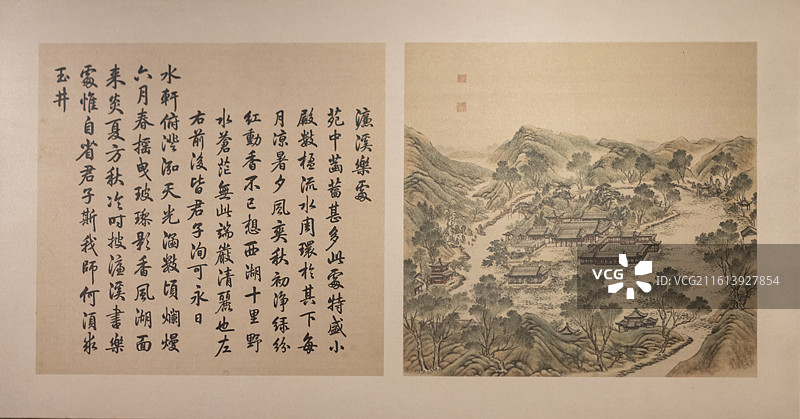 濂溪樂處
苑中菡萏甚多此處特盛小
殿數楹流水周環於其下每
月涼暑夕風爽秋初淨綠紛
紅動香不已想西湖十里野
水蒼茫無此端嚴清麗也左
右前後皆君子洵可永日
水軒俯澄泓天光涵數頃爛熳
六月春搖曳玻瓈影香風湖面
来炎夏方秋冷時披濂溪書樂
處惟自省君子斯我師何須求
玉井
VCG
ID:VCG211613927854